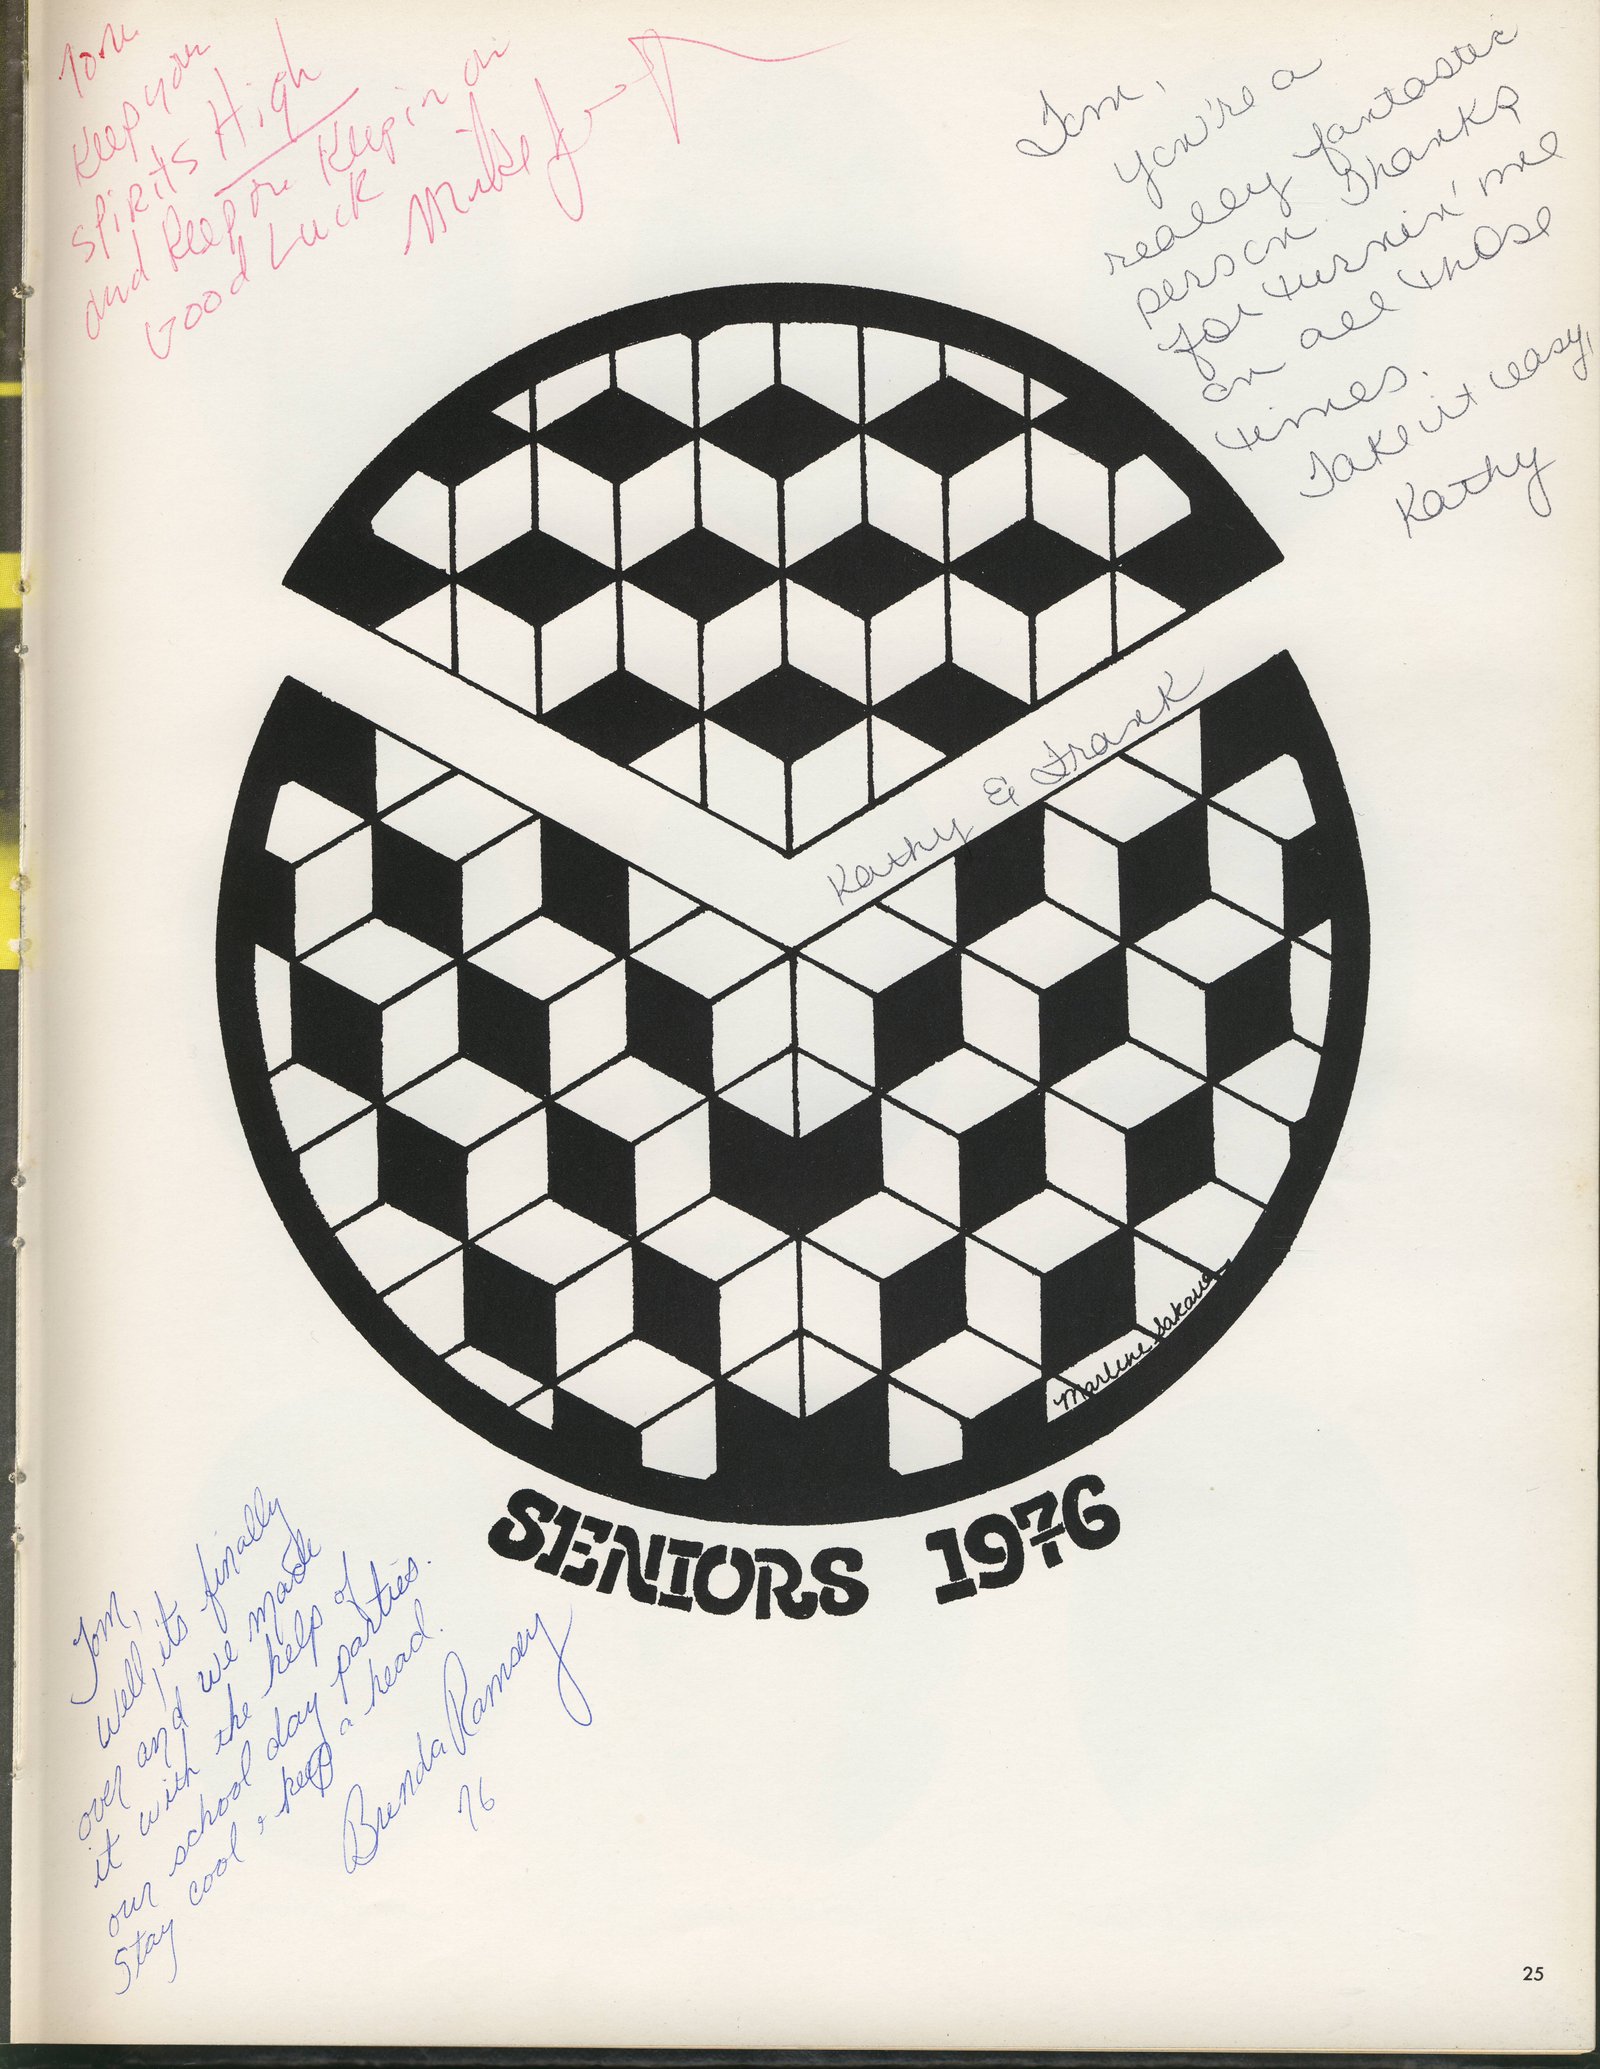 Tom
Keep your
spirits High
and Keep on Keepin on
Good Luck
Mike
Tom,
You're a
really fantastic
person. Thanks
for turnin' me
on all those
times.
Take it easy,
Kathy
Kathy & Frank
Marlene
SENIORS 1976
Tom,
Well, its finally
over and we made
it with the help of
our school day parties.
Stay cool & keep a head.
Brenda Ramsey
76
25